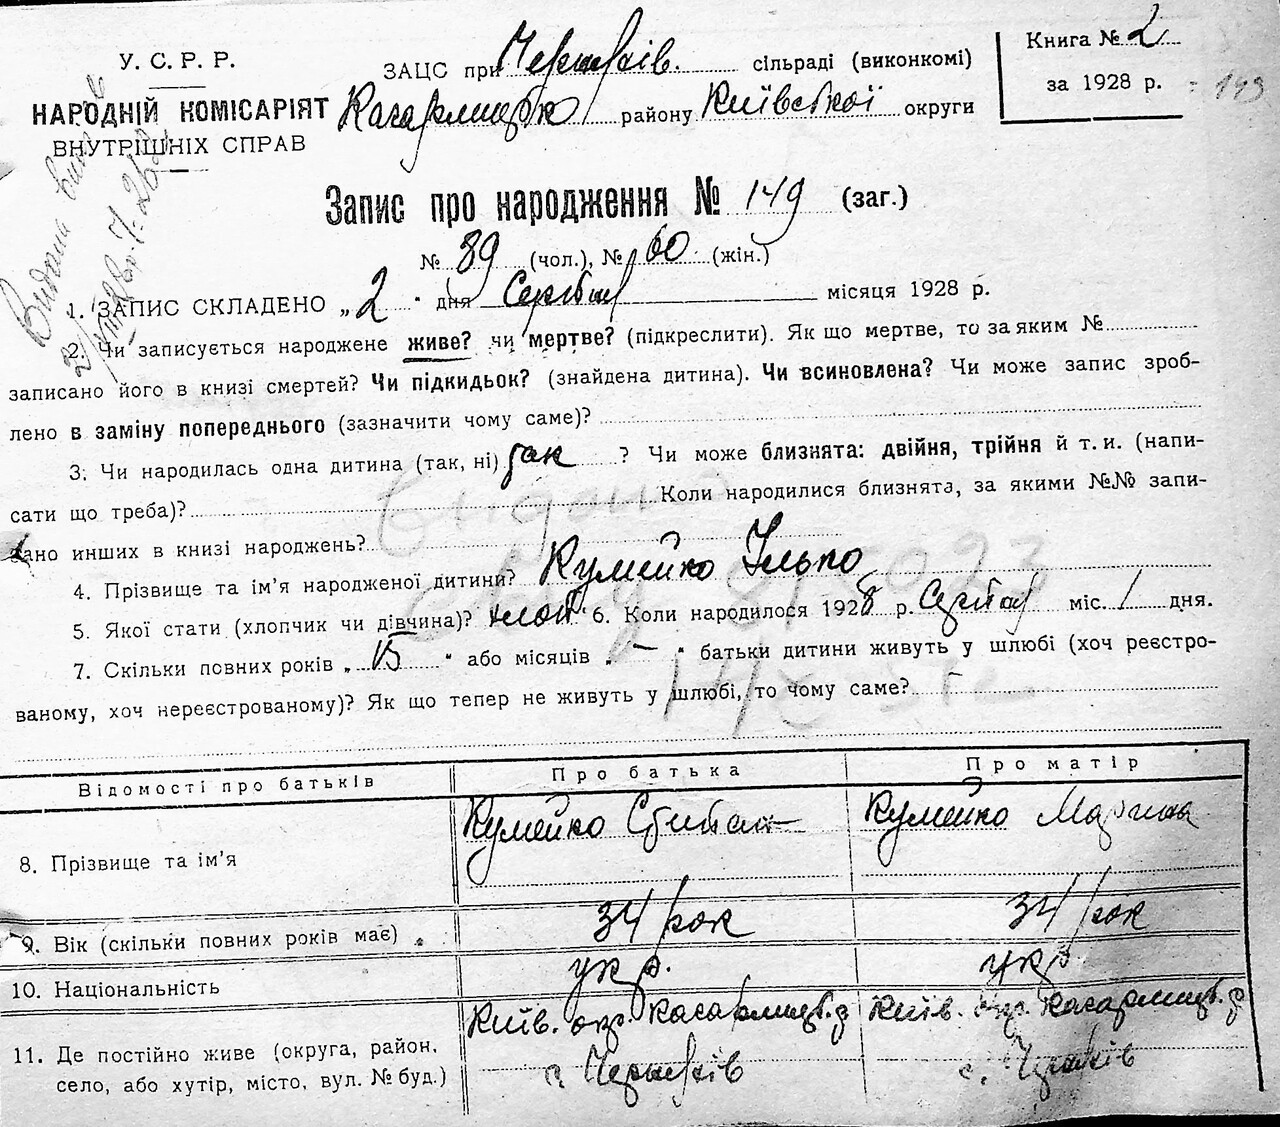 У. С. Р. Р.
НАРОДНІЙ КОМІСАРІЯТ
ВНУТРІШНІХ СПРАВ
ЗАЦС при Черняхів. сільраді (виконкомі)
Кагарлицьк району Київської округи
Книга № 2
за 1928 р.
Запис про народження № 149 (заг.)
№ 89 (чол.), № 60 (жін.)
1. ЗАПИС СКЛАДЕНО „2“ дня Серпня місяця 1928 р.
2. Чи записується народжене живе? чи мертве? (підкреслити). Як що мертве, то за яким №
записано його в книзі смертей? Чи підкидьок? (знайдена дитина). Чи всиновлена? Чи може запис зроб-
лено в заміну попереднього (зазначити чому саме)?
3. Чи народилась одна дитина (так, ні) так ? Чи може близнята: двійня, трійня й т. и. (напи-
сати що треба)? Коли народилися близнята, за якими №№ запи-
сано инших в книзі народжень?
4. Прізвище та ім’я народженої дитини? Кумейко Ілько
5. Якої стати (хлопчик чи дівчина)? хлоп 6. Коли народилося 1928 р. Серпня міс. 1 дня.
7. Скільки повних років „ 15 “ або місяців „ — “ батьки дитини живуть у шлюбі (хоч реєстро-
ваному, хоч нереєстрованому)? Як що тепер не живуть у шлюбі, то чому саме?
Відомості про батьків Про батька Про матір
8. Прізвище та ім’я Кумейко Степан Кумейко Марина
9. Вік (скільки повних років має) 34 рок 34 рок
10. Національність укр. укр.
11. Де постійно живе (округа, район, село, або хутір, місто, вул. № буд.) Київ. окр. Кагарлицьк. р с. Черняхів Київ. окр. Кагарлицьк. р с. Черняхів